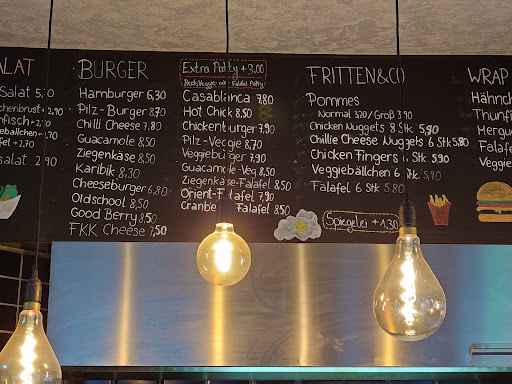 ALAT
Salat 5,
chenbrust + 2,90
nfisch + 2,90
eballchen
fel + 2,70
salat 2,90
BURGER
Hamburger 6,30
Pilz-Burger 8,70
Chilli Cheese 7,80
Guacamole 8,50
Ziegenkäse 8,50
Karibik 8,30
Cheeseburger 6,80
Oldschool 8,50
Good Berry 8,50
FKK Cheese 7,50
Extra Patty +3,00
Beef, Veggie od. Falafel Patty
Casablanca 7,80
Hot Chick 8,50
Chickenburger 7,90
Pilz-Veggie 8,70
Veggieburger 7,90
Guacamole-Veg 8,50
Ziegenkäse-Falafel 8,50
Orient-F lafel 7,90
Cranbe Falafel 8,50
FRITTEN&CO
Pommes
Normal 3,20/Groß 3,90
Chicken Nuggets 8 Stk 5,90
Chillie Cheese Nuggets 6 Stk 5,80
Chicken Fingers 6 Stk 5,90
Veggiebällchen 6 Stk 5,90
Falafel 6 Stk 5,80
Spiegelei +1,30
WRAP
Hähnch
Thunfi
Hergu
Falafe
Veggie